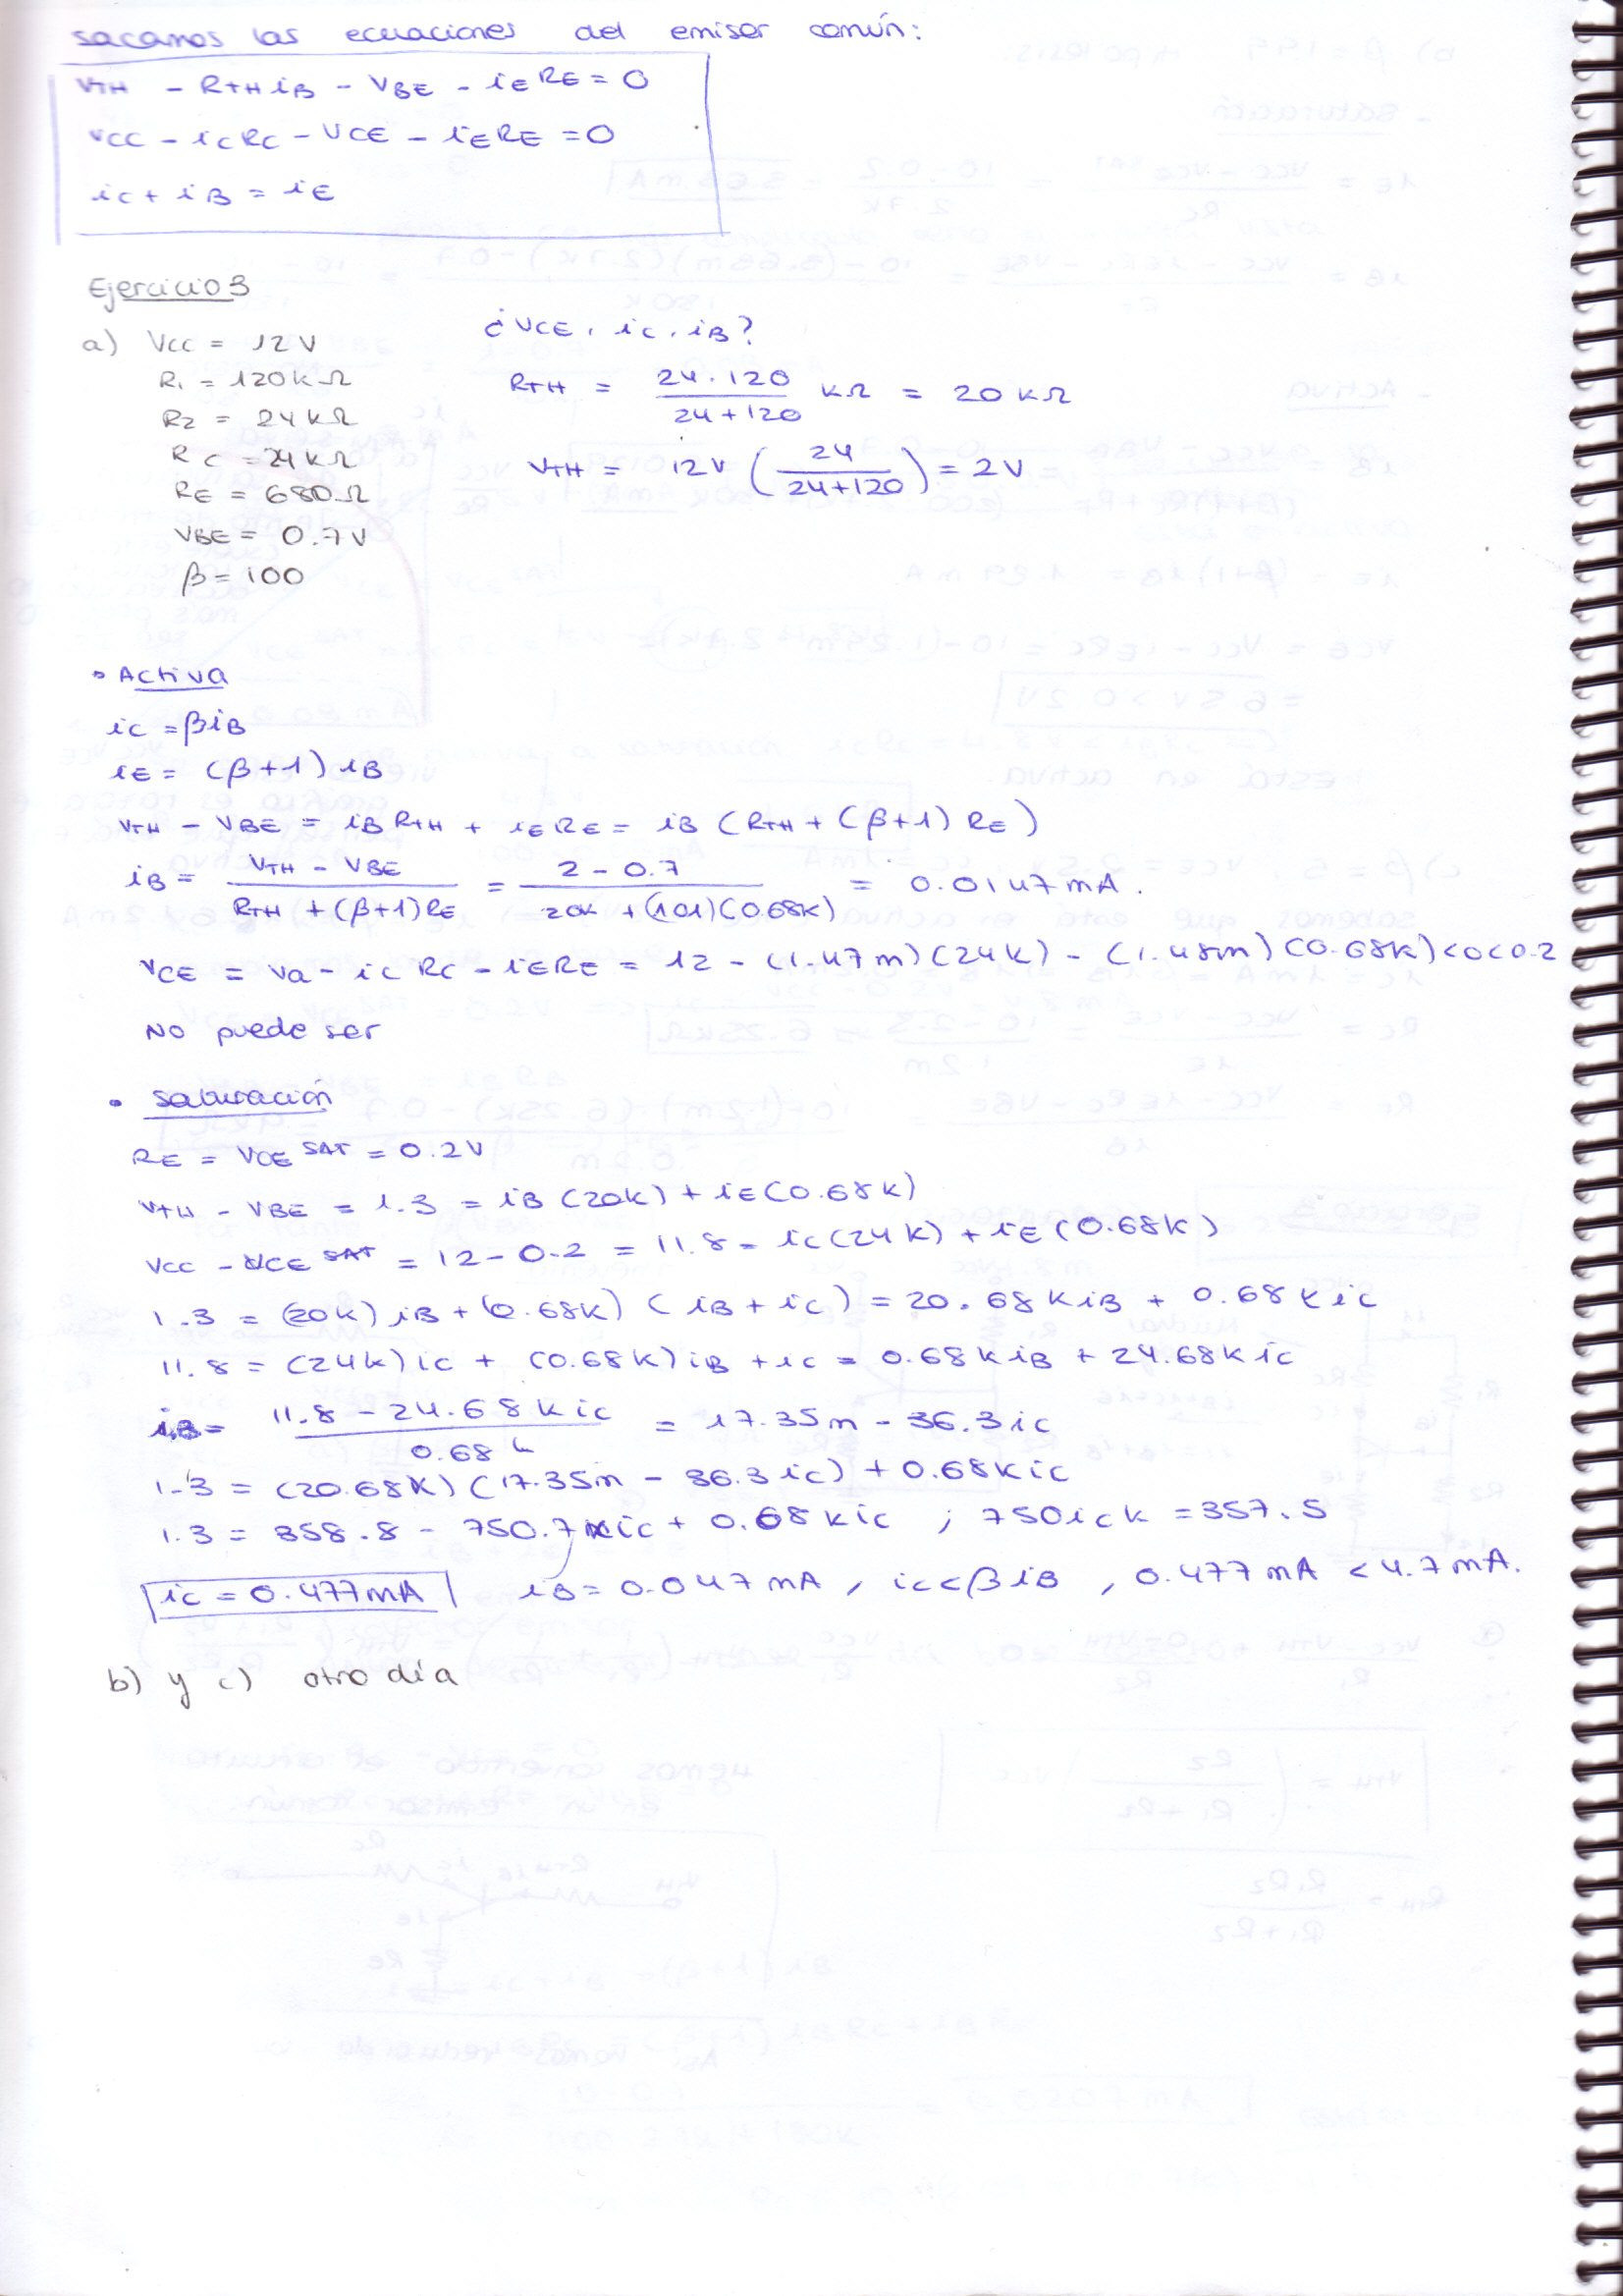 sacamos las ecuaciones del emisor común:
VTH - RTH iB - VBE - iE RE = 0
VCC - iC RC - VCE - iE RE = 0
iC + iB = iE
Ejercicio 3
¿VCE, iC, iB?
a) VCC = 12V
R1 = 120kΩ
RTH = 24·120 / 24+120 kΩ = 20kΩ
R2 = 24kΩ
RC = 24kΩ
VTH = 12V (24 / 24+120) = 2V
RE = 680Ω
VBE = 0.7V
β = 100
• Activa
iC = βiB
iE = (β+1) iB
VTH - VBE = iB RTH + iE RE = iB (RTH + (β+1) RE)
iB = VTH - VBE / RTH + (β+1)RE = 2 - 0.7 / 20k + (101)(0.68k) = 0.0147mA.
VCE = Va - iC RC - iE RE = 12 - (1.47m)(24k) - (1.48m)(0.68k) < 0 < 0.2
No puede ser
• Saturación
RE = VCE SAT = 0.2V
VTH - VBE = 1.3 = iB (20k) + iE (0.68k)
VCC - VCE SAT = 12 - 0.2 = 11.8 = iC (24k) + iE (0.68k)
1.3 = (20k) iB + (0.68k) (iB + iC) = 20.68k iB + 0.68k iC
11.8 = (24k) iC + (0.68k) iB + iC = 0.68k iB + 24.68k iC
iB = 11.8 - 24.68k iC / 0.68k = 17.35m - 36.3 iC
1.3 = (20.68k) (17.35m - 36.3 iC) + 0.68k iC
1.3 = 358.8 - 750.7k iC + 0.68k iC ; 750 iC k = 357.5
iC = 0.477mA iB = 0.047mA , iC < β iB , 0.477mA < 4.7mA.
b) y c) otro día